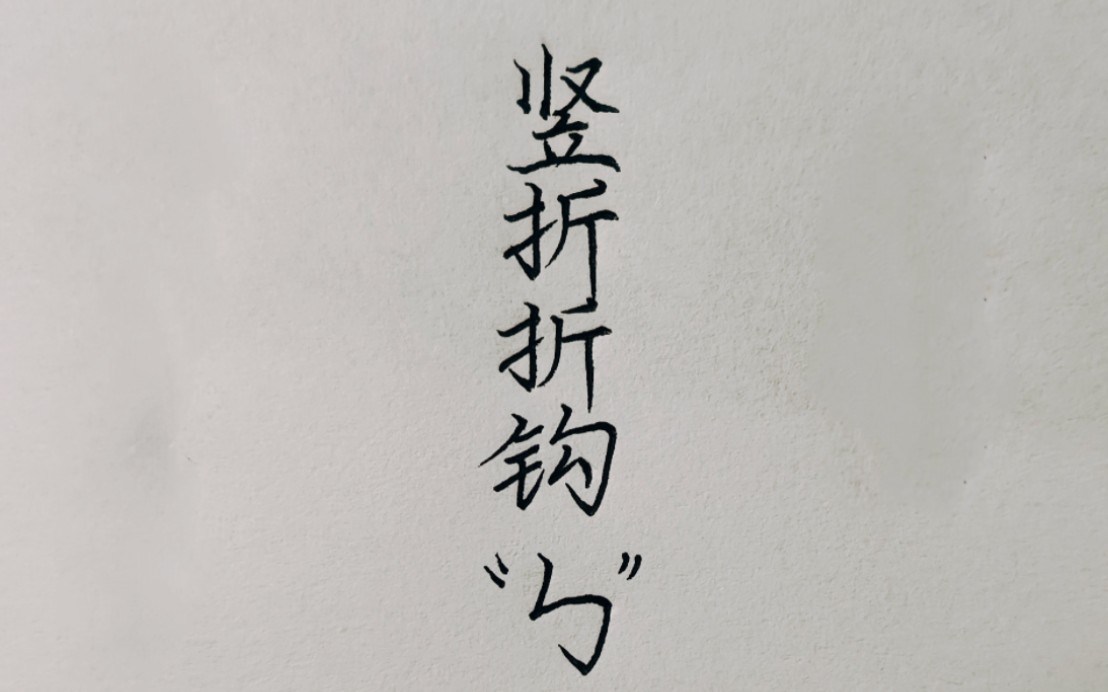 竖折折钩
“㇉”